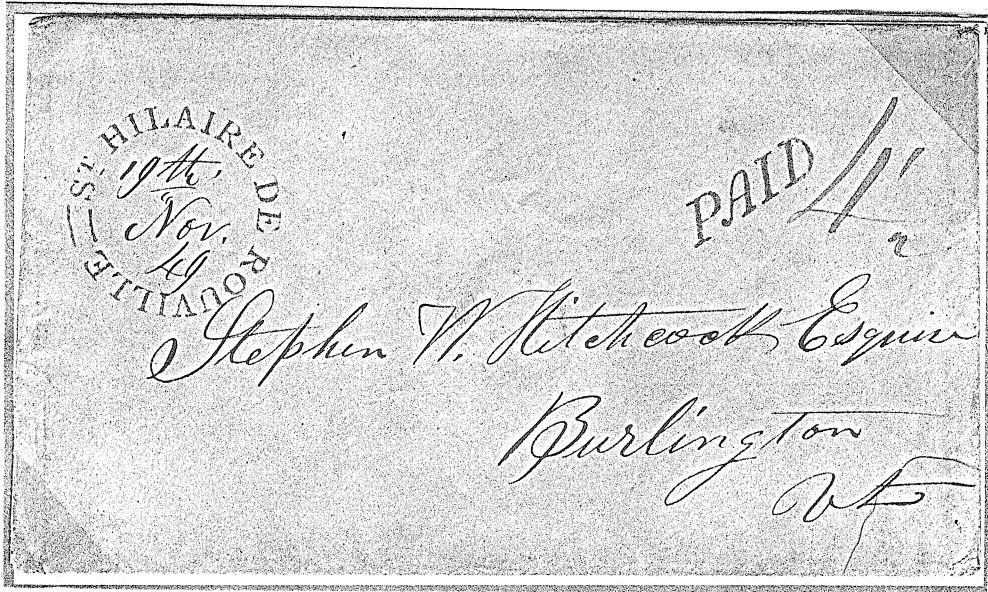 ST HILAIRE DE ROUVILLE
19th
Nov.
49
PAID 4
Stephen W. Hitchcock Esquire
Burlington
Vt